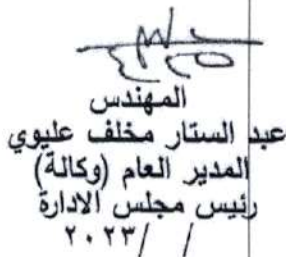 المهندس
عبد الستار مخلف عليوي
المدير العام (وكالة)
رئيس مجلس الادارة
٢٠٢٣/ /